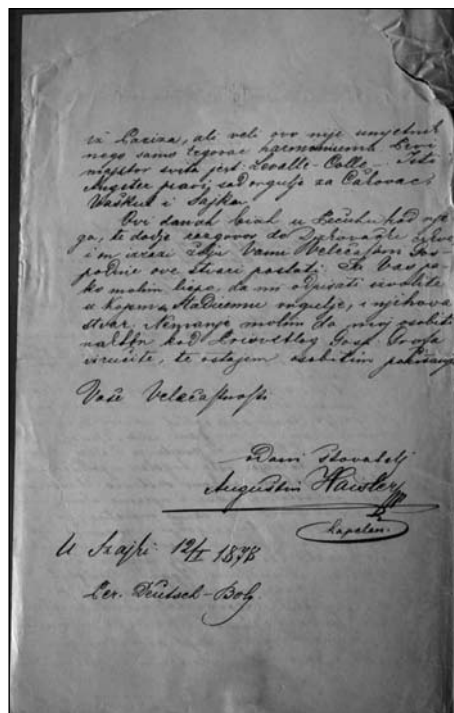 iz Pariza, ali veli ovo nije umjetnik
nego samo tegovac harmoniumah. Prvi
majstor sveta jest: Levalle-Colle. Isti
Angster pravi sad orgulje za Čatovac,
Vaškut i Sajka.
Ovi danah biah u Pečuhu kod nje
ga, te dodje razgovor do Djakovačke crkve,
i on izrazi želju Vami Velečastni Gos
podine ove stvari poslati. Ja Vas ja
ko molim liepo, da mi odpisati izvolite
u kojem Stadiumu orgulje, i njihova
stvar. Nemanje molim da moj osobiti
naklon kod Gosp.
izručite, te ostajem osobitim poštovanjem
Vaše Velečastnosti
odani štovatelj
Augustin Haisler
kapelan.
U Szajki 12/I 1878
Per. Deutsch-Boly.